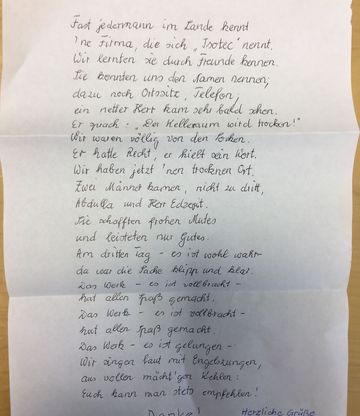 Fast jedermann im Lande kennt
'ne Firma, die sich „Isotec" nennt.
Wir lernten sie durch Freunde kennen.
Sie konnten uns den Namen nennen;
dazu noch Ortssitz, Telefon;
ein netter Herr kam sehr bald schon.
Er sprach: „Der Kellerraum wird trocken!"
Wir waren völlig von den Socken.
Er hatte Recht, er hielt sein Wort.
Wir haben jetzt 'nen trocknen Ort.
Zwei Männer kamen, nicht zu dritt,
Abdulla und Herr
Sie schafften frohen Mutes
und leisteten nur Gutes.
Am dritten Tag - es ist wohl wahr -
da war die Sache klipp und klar.
Das Werk - es ist vollbracht -
hat allen Spaß gemacht.
Das Werk - es ist vollbracht -
hat allen Spaß gemacht.
Das Werk - es ist gelungen -
Wir singen laut mit Engelszungen,
aus vollen mächt'gen Kehlen:
Euch kann man stets empfehlen!
Danke!
Herzliche Grüße